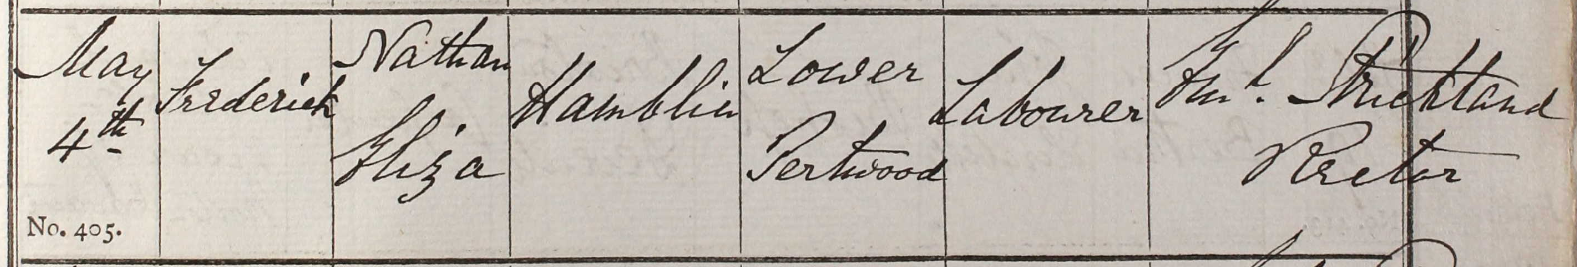 May
4th
No. 405.
Frederick
Nathan
Eliza
Hamblin
Lower
Pertwood
Labourer
Strickland
Rector